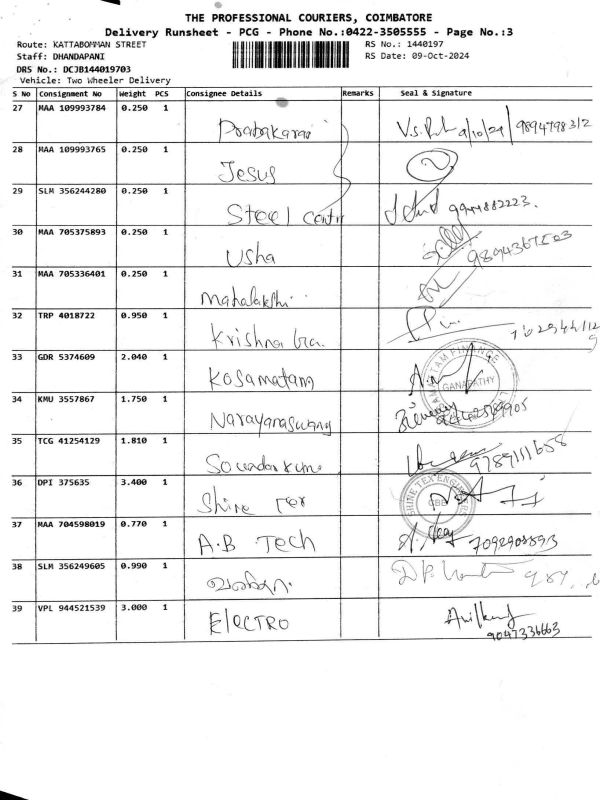 THE PROFESSIONAL COURIERS, COIMBATORE
Delivery Runsheet - PCG - Phone No.:0422-3505555 - Page No.:3
Route: KATTABOMMAN STREET RS No.: 1440197
Staff: DHANDAPANI RS Date: 09-Oct-2024
DRS No.: DCJB144019703
Vehicle: Two Wheeler Delivery
S No Consignment No Weight PCS Consignee Details Remarks Seal & Signature
27 MAA 109993784 0.250 1 Prabakaran 9/10/24 9894798312
28 MAA 109993765 0.250 1 Jesus
29 SLM 356244280 0.250 1 Steel 9944882223.
30 MAA 705375893 0.250 1 Usha
31 MAA 705336401 0.250 1 Mahalakshi
32 TRP 4018722 0.950 1 Krishna
33 GDR 5374609 2.040 1 Kosamatam GANAPATHY
34 KMU 3557867 1.750 1 Narayanaswamy
35 TCG 41254129 1.810 1 9789111658
36 DPI 375635 3.400 1 Shine Tex SHINE TEX ENGINEERS CBE
37 MAA 704598019 0.770 1 A.B Tech 7092908893
38 SLM 356249605 0.990 1
39 VPL 944521539 3.000 1 ELECTRO Anilkumar
9047336663